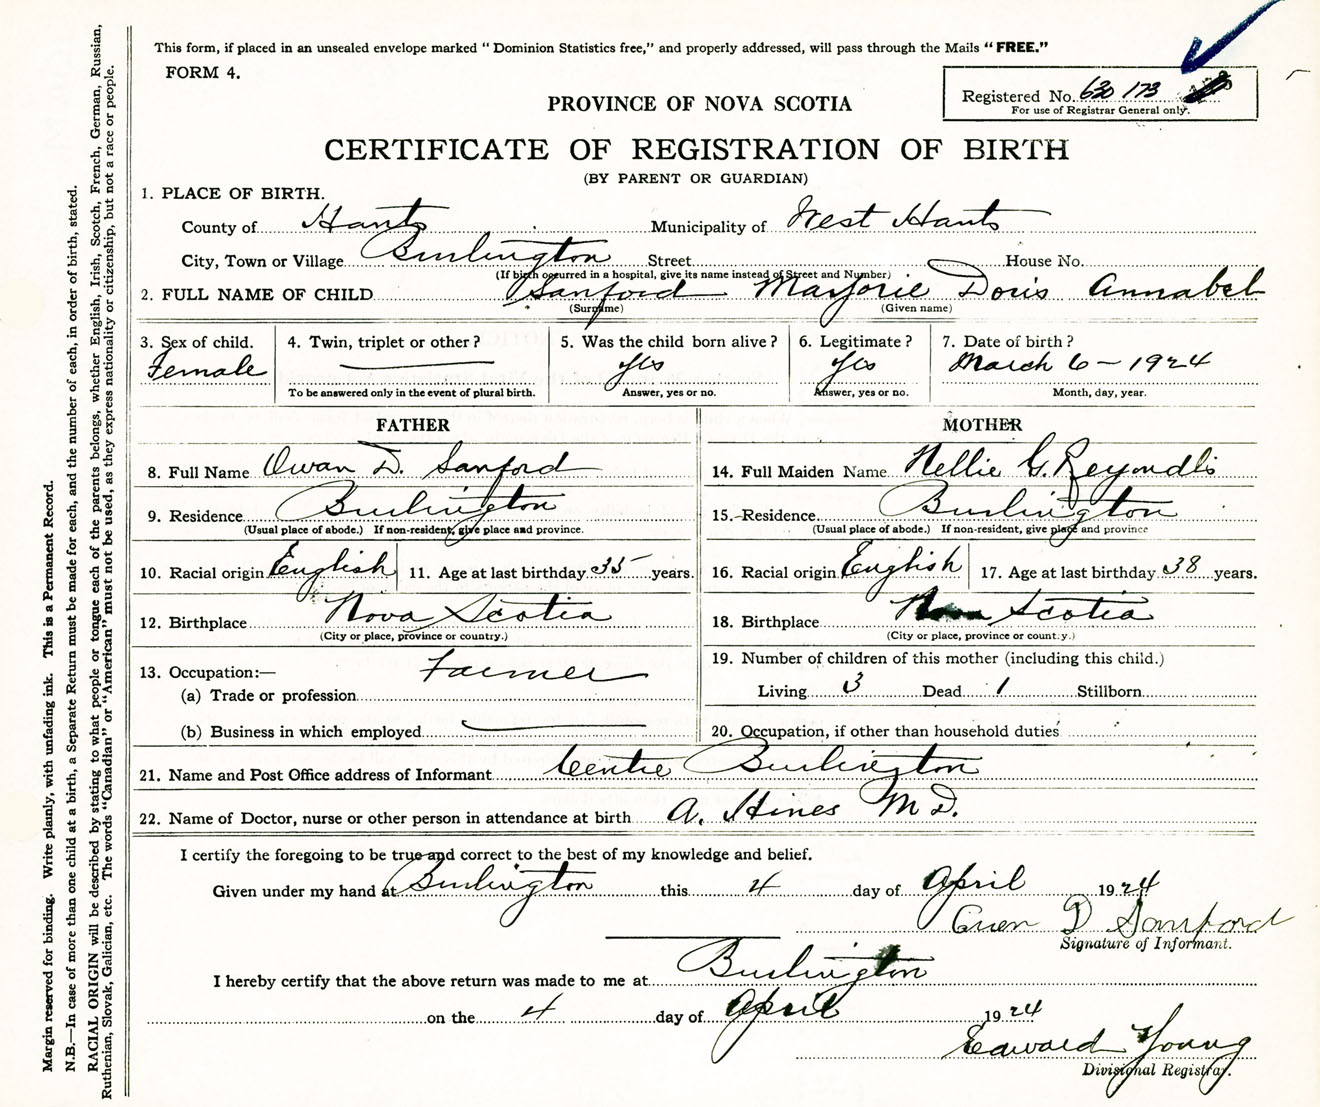 This form, if placed in an unsealed envelope marked "Dominion Statistics free," and properly addressed, will pass through the Mails "FREE."
FORM 4.
Registered No. 630 173
For use of Registrar General only.
PROVINCE OF NOVA SCOTIA
CERTIFICATE OF REGISTRATION OF BIRTH
(BY PARENT OR GUARDIAN)
1. PLACE OF BIRTH.
County of Hants Municipality of West Hants
City, Town or Village Burlington Street House No.
(If birth occurred in a hospital, give its name instead of Street and Number)
2. FULL NAME OF CHILD Sanford Marjorie Doris Annabel
(Surname) (Given name)
3. Sex of child. 4. Twin, triplet or other? 5. Was the child born alive? 6. Legitimate? 7. Date of birth?
Female Yes Yes March 6 - 1924
To be answered only in the event of plural birth. Answer, yes or no. Answer, yes or no. Month, day, year.
FATHER MOTHER
8. Full Name Owan D. Sanford 14. Full Maiden Name Nellie G. Reyondls
9. Residence Burlington 15. Residence Burlington
(Usual place of abode.) If non-resident, give place and province. (Usual place of abode.) If non-resident, give place and province
10. Racial origin English 11. Age at last birthday 35 years. 16. Racial origin English 17. Age at last birthday 38 years.
12. Birthplace Nova Scotia 18. Birthplace Nova Scotia
(City or place, province or country.) (City or place, province or country.)
13. Occupation:— Farmer 19. Number of children of this mother (including this child.)
(a) Trade or profession Living 3 Dead 1 Stillborn
(b) Business in which employed 20. Occupation, if other than household duties
21. Name and Post Office address of Informant Centre Burlington
22. Name of Doctor, nurse or other person in attendance at birth A. Hines M D.
I certify the foregoing to be true and correct to the best of my knowledge and belief.
Given under my hand at Burlington this 4 day of April 1924
Owen D Sanford
Signature of Informant.
I hereby certify that the above return was made to me at Burlington
on the 4 day of April 1924
Edward Young
Divisional Registrar.
Margin reserved for binding. Write plainly, with unfading ink. This is a Permanent Record.
N.B.—In case of more than one child at a birth, a Separate Return must be made for each, and the number of each, in order of birth, stated.
RACIAL ORIGIN will be described by stating to what people or tongue each of the parents belongs, whether English, Irish, Scotch, French, German, Russian,
Ruthenian, Slovak, Galician, etc. The words "Canadian" or "American" must not be used, as they express nationality or citizenship, but not a race or people.